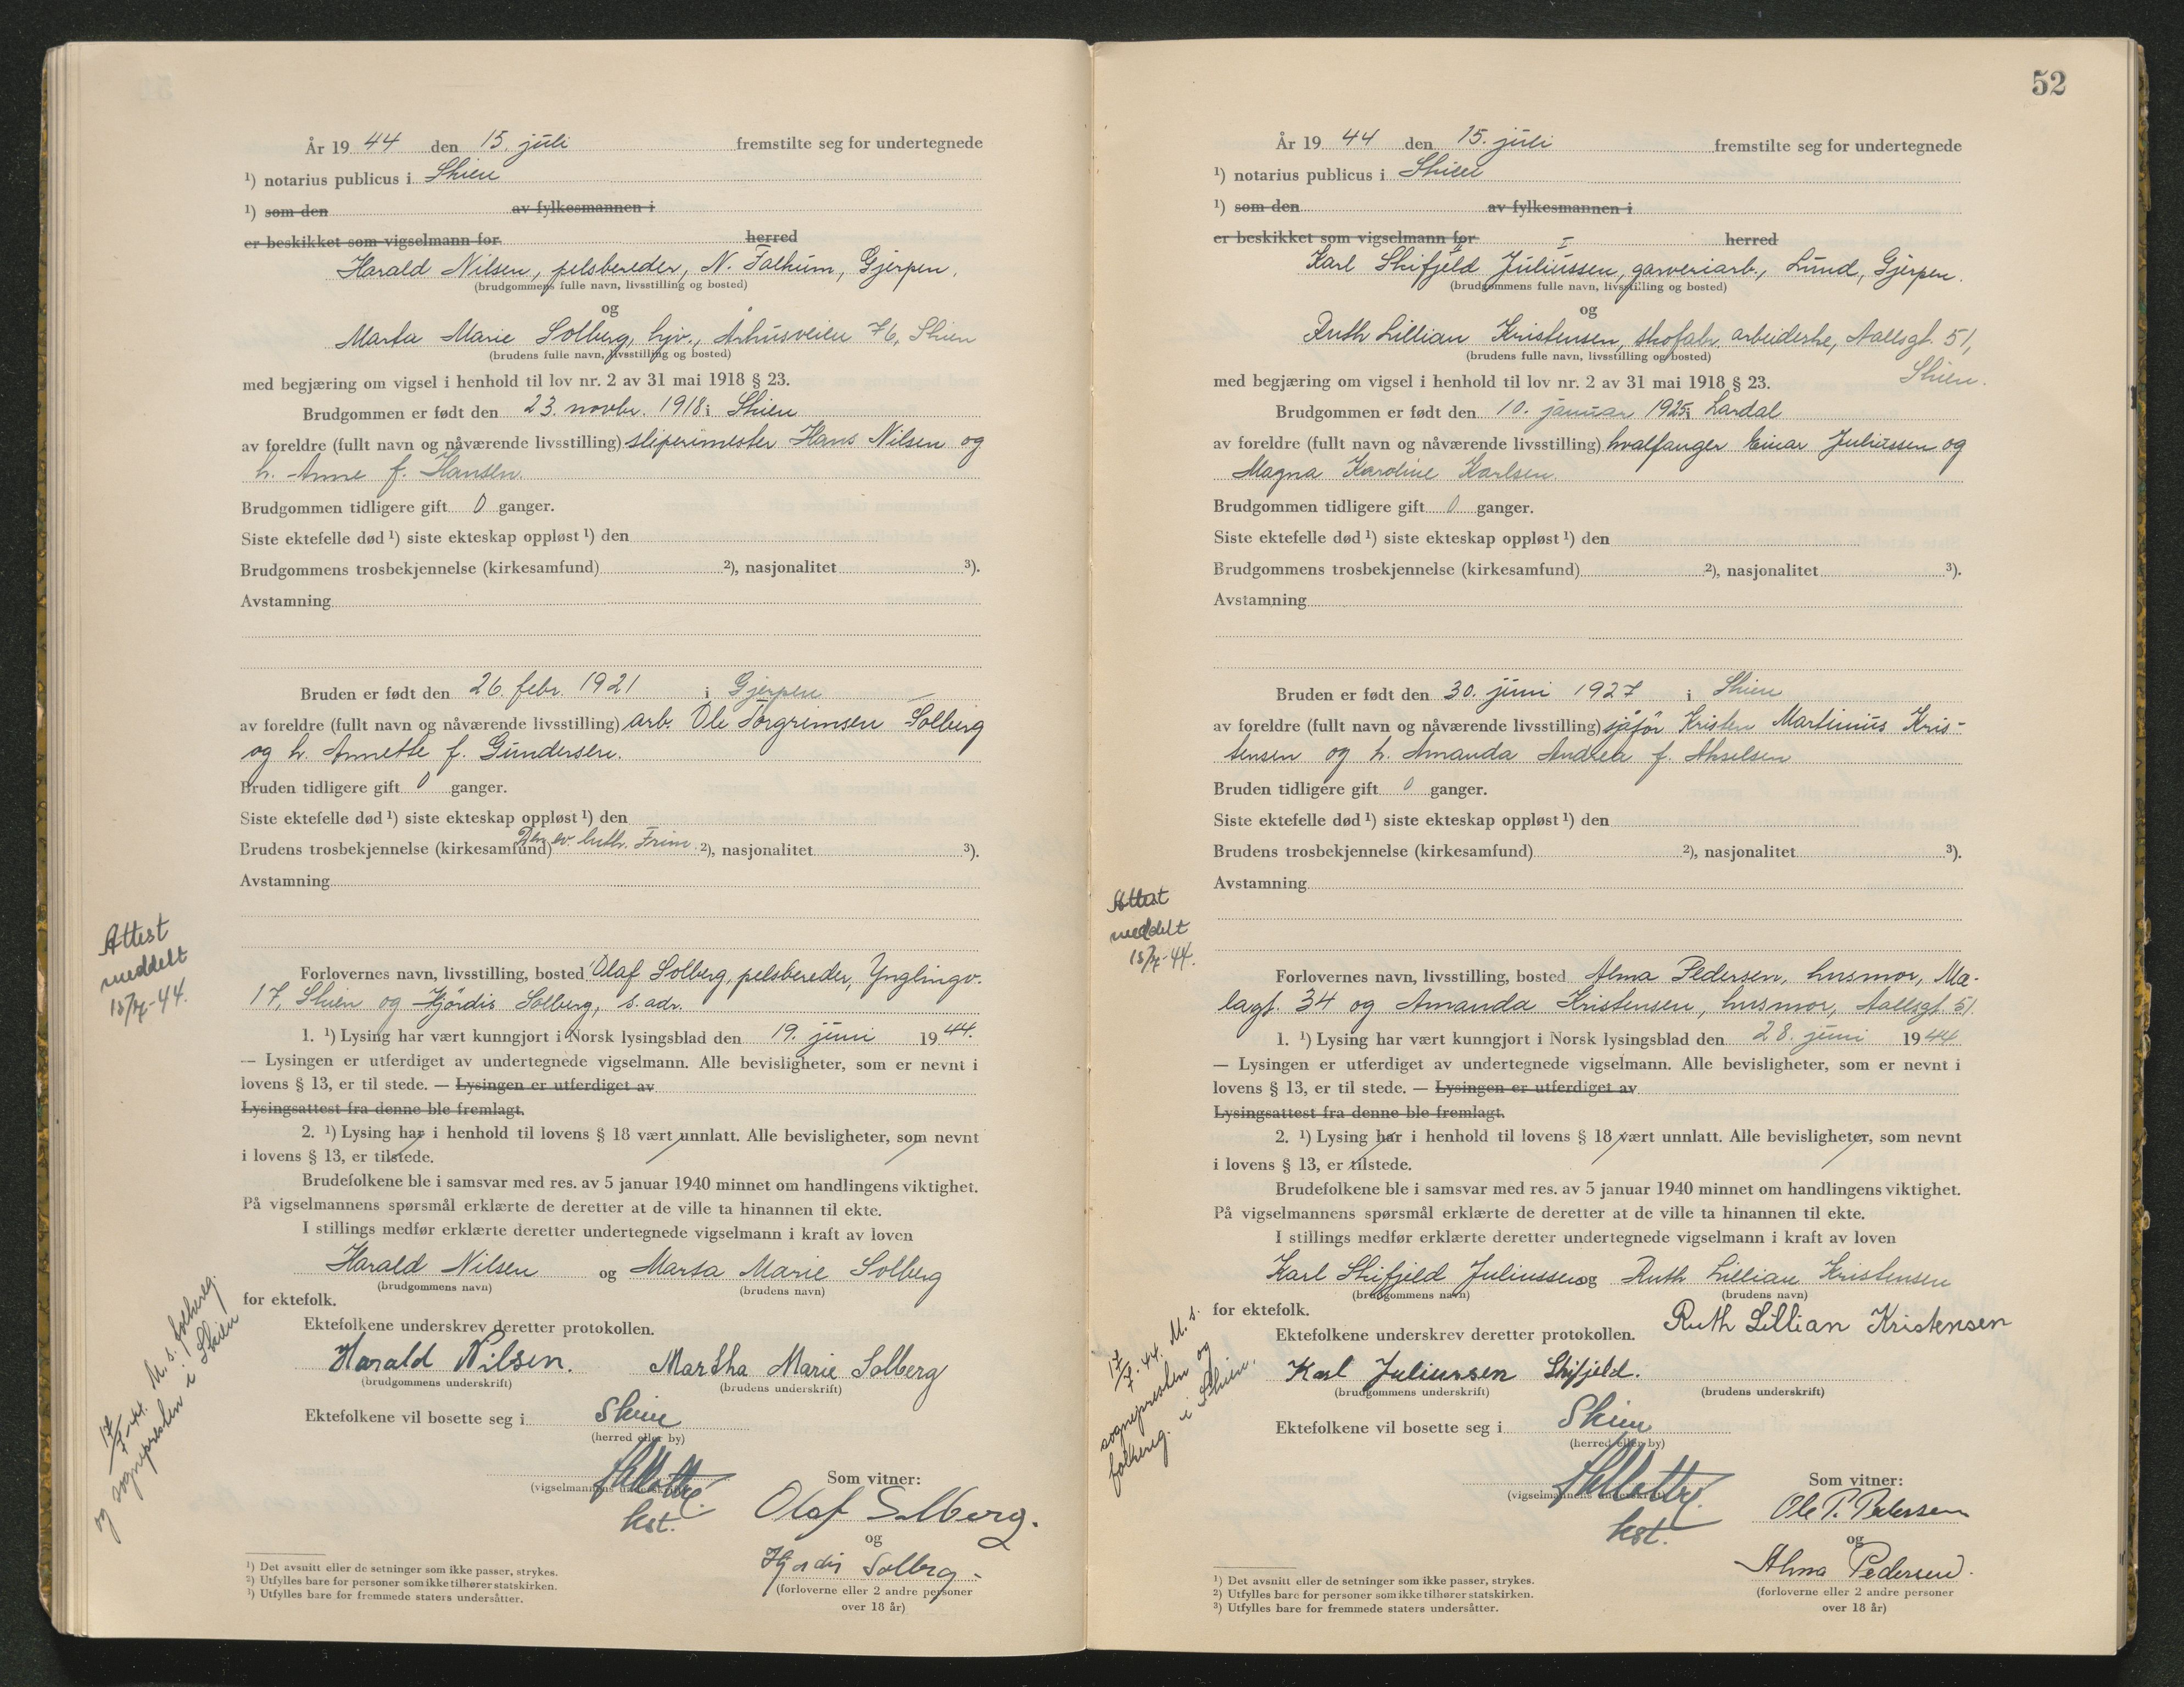 År 19 44 den 15. juli fremstilte seg for undertegnede
¹) notarius publicus i Skien
¹) som den av fylkesmannen i
er beskikket som vigselmann for herred
Harald Nilsen, pelsbereder, N. Falkum, Gjerpen.
(brudgommens fulle navn, livsstilling og bosted)
og
Marta Marie Solberg, hjv., Århusveien 76, Skien
(brudens fulle navn, livsstilling og bosted)
med begjæring om vigsel i henhold til lov nr. 2 av 31 mai 1918 § 23.
Brudgommen er født den 23. novbr. 1918 i Skien
av foreldre (fullt navn og nåværende livsstilling) sliperimester Hans Nilsen og
h. Anne f. Hansen.
Brudgommen tidligere gift 0 ganger.
Siste ektefelle død ¹) siste ekteskap oppløst ¹) den
Brudgommens trosbekjennelse (kirkesamfund) ²), nasjonalitet ³).
Avstamning
Bruden er født den 26. febr. 1921 i Gjerpen
av foreldre (fullt navn og nåværende livsstilling) arb. Ole Torgrimsen Solberg
og h. Annette f. Gundersen.
Bruden tidligere gift 0 ganger.
Siste ektefelle død ¹) siste ekteskap oppløst ¹) den
Brudens trosbekjennelse (kirkesamfund) Den ev. luth. Frim. ²), nasjonalitet ³).
Avstamning
Attest
meddelt
15/7-44.
Forlovernes navn, livsstilling, bosted Olaf Solberg, pelsbereder, Ynglingv.
17, Skien og Hjördis Solberg, s. adr.
1. ¹) Lysing har vært kunngjort i Norsk lysingsblad den 19. juni 1944.
— Lysingen er utferdiget av undertegnede vigselmann. Alle bevisligheter, som er nevnt i
lovens § 13, er til stede. — Lysingen er utferdiget av
Lysingsattest fra denne ble fremlagt.
2. ¹) Lysing har i henhold til lovens § 18 vært unnlatt. Alle bevisligheter, som nevnt
i lovens § 13, er tilstede.
Brudefolkene ble i samsvar med res. av 5 januar 1940 minnet om handlingens viktighet.
På vigselmannens spørsmål erklærte de deretter at de ville ta hinannen til ekte.
I stillings medfør erklærte deretter undertegnede vigselmann i kraft av loven
Harald Nilsen og Marta Marie Solberg
(brudgommens navn) (brudens navn)
for ektefolk.
Ektefolkene underskrev deretter protokollen.
Harald Nilsen. Martha Marie Solberg
(brudgommens underskrift) (brudens underskrift)
Ektefolkene vil bosette seg i Skien
(herred eller by)
17/7-44. M. s. folkereg.
og sognepresten i Skien
(vigselmannens underskrift)
kst.
Som vitner:
Olaf Solberg.
og
Hjordis Solberg
(forloverne eller 2 andre personer
over 18 år)
¹) Det avsnitt eller de setninger som ikke passer, strykes.
²) Utfylles bare for personer som ikke tilhører statskirken.
³) Utfylles bare for fremmede staters undersåtter.
52
År 19 44 den 15. juli fremstilte seg for undertegnede
¹) notarius publicus i Skien
¹) som den av fylkesmannen i
er beskikket som vigselmann for herred
Karl Skifjeld Juliussen, garveriarb., Lund, Gjerpen.
(brudgommens fulle navn, livsstilling og bosted)
og
Ruth Lillian Kristensen, skofabr. arbeiderske, Aallsgt. 51,
(brudens fulle navn, livsstilling og bosted)
Skien.
med begjæring om vigsel i henhold til lov nr. 2 av 31 mai 1918 § 23.
Brudgommen er født den 10. januar 1925 i Lardal
av foreldre (fullt navn og nåværende livsstilling) hvalfanger Einar Juliussen og
Magna Karoline Karlsen.
Brudgommen tidligere gift 0 ganger.
Siste ektefelle død ¹) siste ekteskap oppløst ¹) den
Brudgommens trosbekjennelse (kirkesamfund) ²), nasjonalitet ³).
Avstamning
Bruden er født den 30. juni 1927 i Skien
av foreldre (fullt navn og nåværende livsstilling) sjåför Kristen Martinius Kris-
tensen og h. Amanda Andrea f. Akselsen
Bruden tidligere gift 0 ganger.
Siste ektefelle død ¹) siste ekteskap oppløst ¹) den
Brudens trosbekjennelse (kirkesamfund) ²), nasjonalitet ³).
Avstamning
Attest
meddelt
15/7-44.
Forlovernes navn, livsstilling, bosted Alma Pedersen, husmor, Ma-
lagt. 34 og Amanda Kristensen, husmor, Aallsgt. 51.
1. ¹) Lysing har vært kunngjort i Norsk lysingsblad den 28. juni 1944
— Lysingen er utferdiget av undertegnede vigselmann. Alle bevisligheter, som er nevnt i
lovens § 13, er til stede. — Lysingen er utferdiget av
Lysingsattest fra denne ble fremlagt.
2. ¹) Lysing har i henhold til lovens § 18 vært unnlatt. Alle bevisligheter, som nevnt
i lovens § 13, er tilstede.
Brudefolkene ble i samsvar med res. av 5 januar 1940 minnet om handlingens viktighet.
På vigselmannens spørsmål erklærte de deretter at de ville ta hinannen til ekte.
I stillings medfør erklærte deretter undertegnede vigselmann i kraft av loven
Karl Skifjeld Juliussen og Ruth Lillian Kristensen
(brudgommens navn) (brudens navn)
for ektefolk.
Ektefolkene underskrev deretter protokollen. Ruth Lillian Kristensen
Karl Juliussen Skifjeld.
(brudgommens underskrift) (brudens underskrift)
Ektefolkene vil bosette seg i Skien
(herred eller by)
17/7-44. M. s.
sognepresten og
folkereg. i Skien.
(vigselmannens underskrift)
kst.
Som vitner:
Ole P. Pedersen
og
Alma Pedersen.
(forloverne eller 2 andre personer
over 18 år)
¹) Det avsnitt eller de setninger som ikke passer, strykes.
²) Utfylles bare for personer som ikke tilhører statskirken.
³) Utfylles bare for fremmede staters undersåtter.